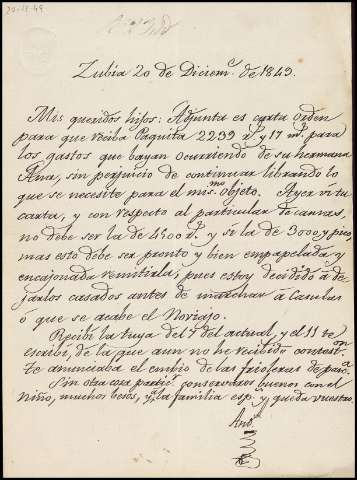 20-12-49
Zubia 20 de Diciem.e de 1849.
Mis queridos hijos: Adjunta es carta orden
para que reciba Paquita 2299 r.s y 17 m.s para
los gastos que bayan ocurriendo de su hermana
Ana, sin perjuicio de continuar librando lo
que se necesite para el mis.mo objeto. Ayer vi tu
carta, y con respecto al particular de
no debe ser la de 4500 r.s y si la de 3000 y pico,
mas esto debe ser pronto y bien empapelada y
encajonada remitirla, pues estoy decidido á de-
jarlos casados antes de marchar á
ó que se acabe el Noviajo.
Recibi la tuya del 7 del actual, y el 11 te
escribi, de la que aun no he recibido contest.on
Te anunciaba el embio de las frioleras de
Sin otra cosa partic.r conservaros buenos con el
Niño, muchos besos, y a la familia esp.s y queda vuestro
And.s